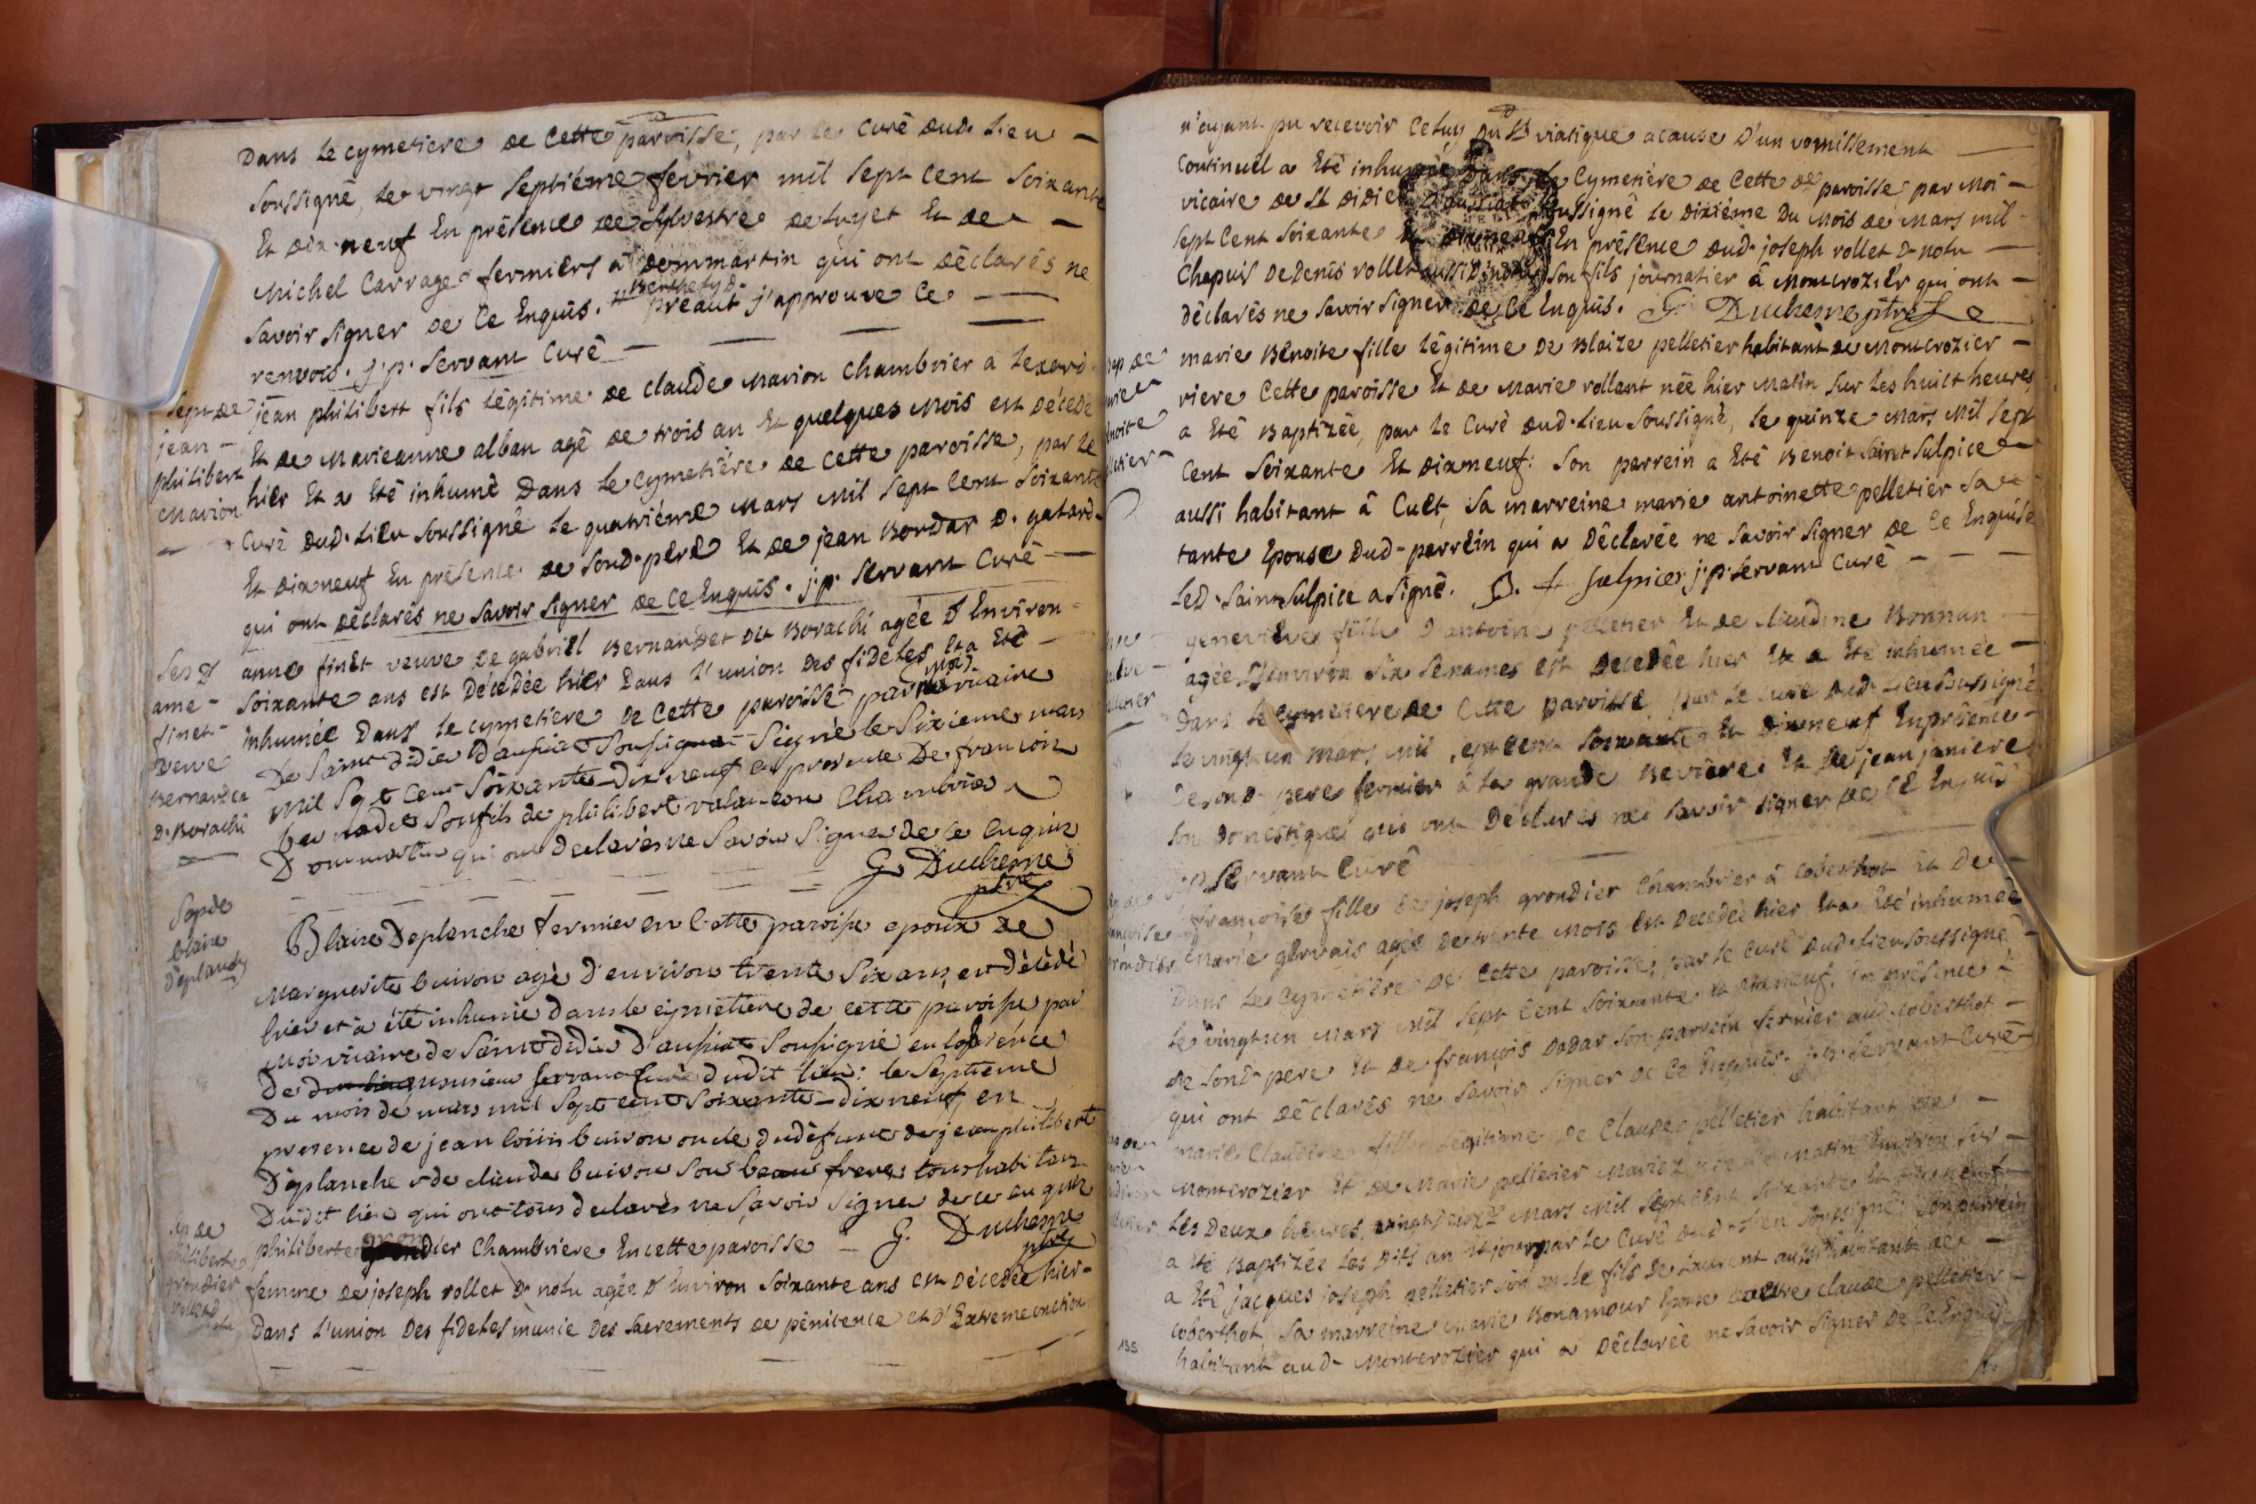 Dans le cymetiere de Cette paroisse, par le Curé dud. Lieu
Soussigné, le vingt Septiéme fevrier mil Sept Cent Soixante
Et dix neuf En présence de Sylvestre de Luyet Et de
Michel Carrage fermiers a dommartin qui ont Déclarés ne
Savoir Signer De Ce Enquis. préaut j'approuve Ce
renvois. j. p. Servant Curé
Sept de
jean
philibert
Marion
jean philibert fils légitime de claude Marion Chambrier a
Et de Marieanne alban agé de trois an Et quelques Mois est Décédé
hier Et a Eté inhumé Dans le Cymetiére de Cette paroisse, par le
Curé dud. Lieu Soussigné le quatriéme Mars Mil Sept Cent Soixante
Et dixneuf En présence de Sond. pere Et de jean Bondar D. gatard
qui ont déclarés ne Savoir Signer de Ce Enquis. j. p. Servant Curé
ame
finet
veuve
Bernardet
D. Borachi
anne finet veuve de gabriel Bernardet dit Borachi agée D'Environ
Soixante ans est Décédée hier Dans l'union des fideles Et a Eté
inhumée Dans le cymetiere de Cette paroisse par moi vicaire
De Saint didier d'aussiat Soussigné Signé le Sixieme mars
Mil Sept Cent Soixante Dix neuf en presence De francois
son fils de philibert valancon Chambrier a
Dommartin qui ont declarés ne Savoir Signer de Ce enquis
G. Duchesne
ptre
Sep de
blaise
déplanche
Blaise Deplanche fermier en Cette paroisse epoux de
Marguerite buiron agé d'environ trente Six ans est décédé
hier et a été inhumé dans le cymetiere de cette paroisse par
moi vicaire de Saint didier d'aussiat Soussigné en l'absence
De monsieur Servant Curé dudit lieu: le Septieme
Du mois de mars mil Sept cent Soixante-dix neuf, en
presence de jean buiron oncle dudéfunt de jean philibert
Déplanche & de claude buiron Son beau frere tous habitans
Dudit lieu qui ont tous declarés ne Savoir Signer de ce enquis
G. Duchesne
ptre
Sep de
philiberte
grondier
rollet D.
notu
philiberte grondier Chambriere En cette paroisse
femme de joseph rollet D. notu agée D'Environ Soixante ans est Décédée hier
Dans l'union Des fideles munie Des Sacrements de pénitence et d'Extreme onction
n'ayant pu recevoir Celuy Du St viatique a cause D'un vomissement
Continuel a Eté inhumée Dans le Cymetiére de Cette de paroisse par Moi
vicaire de St Didier D'aussiat Soussigné le dixiéme Du Mois de Mars mil
Sept Cent Soixante Et dixneuf En présence dud. joseph rollet D. notu
Chapuis de Denis rollet aussi D. notu Son fils journalier á Montcrozier qui ont
déclarés ne Savoir Signer de Ce Enquis. G. Duchesne ptre
marie Benoite fille légitime de Blaize pelletier habitant de Montcrozier
riere Cette paroisse Et de Marie vollent née hier Matin Sur les huict heures
a Eté Baptizée, par le Curé dud. Lieu Soussigné, le quinze Mars Mil Sept
Cent Soixante Et dixneuf: Son parrein a Eté Benoit Saint Sulpice
aussi habitant á Cuet, Sa marreine marie antoinette pelletier Sa
tante Epouse Dud. parrein qui a Déclarée ne Savoir Signer de Ce Enquise
led. Saint Sulpice a Signé. B. St sulpice j. p. Servant Curé
genevieve fille d'antoine pelletier Et de Claudine Bonnan
agée D'environ Six Semaines est Décédée hier Et a Eté inhumée
Dans le Cymetiere de Cette paroisse par le Curé dud. Lieu Soussigné
le vingt un Mars Mil Sept Cent Soixante Et Dixneuf En présence
de sond. pere fermier á la grande Beviére Et de jean janiere
Son Domestique qui ont Déclarés ne Savoir Signer de Ce Enquis
j. p. Servant Curé
françoise fille de joseph grondier Chambrier á Coberthot Et De
Marie gervais agée de trente Mois est Décédée hier Et a Eté inhumée
Dans le Cymetiére de Cette paroisse, par le Curé dud. Lieu Soussigné
le vingt un Mars Mil Sept Cent Soixante Et dixneuf, En présence
de Sond. pere Et de françois Dadar Son parrein fermier aud. Coberthot
qui ont déclarés ne Savoir Signer de Ce Enquis. j. p. Servant Curé
marie Claudine fille légitime de Claude pelletier habitant de
Montcrozier Et de Marie pelletier Mariez née Ce Matin Environ Sur
les Deux heures, vingt deux Mars Mil Sept Cent Soixante Et dixneuf
a Eté Baptizée les Dits an Et jour par le Curé dud. Lieu Soussigné: Son parrein
a Eté jacques joseph pelletier Son oncle fils de Laurent aussi habitant de
Coberthot Sa marreine Marie Bonamour Epouse autre claude pelletier
habitant aud. Montcrozier qui a Déclarée ne Savoir Signer de Ce Enquise
135